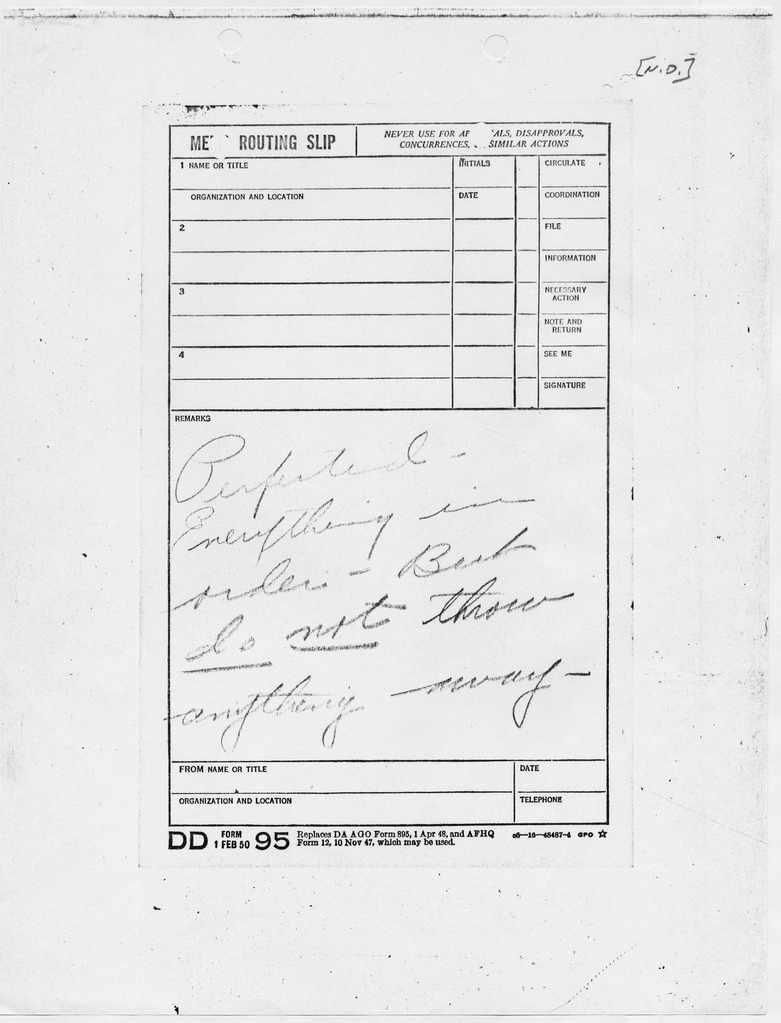 [N.D.]
ROUTING SLIP
NEVER USE FOR
DISAPPROVALS,
CONCURRENCES, SIMILAR ACTIONS
1 NAME OR TITLE
INITIALS
CIRCULATE
ORGANIZATION AND LOCATION
DATE
COORDINATION
2
FILE
INFORMATION
3
NECESSARY
ACTION
NOTE AND
RETURN
4
SEE ME
SIGNATURE
REMARKS
Perfected -
Everything in
order - But
do not throw
anything away -
FROM NAME OR TITLE
DATE
ORGANIZATION AND LOCATION
TELEPHONE
DD FORM 1 FEB 50 95
Replaces DA AGO Form 895, 1 Apr 48, and AFHQ
Form 12, 10 Nov 47, which may be used.
16—48487-4 GPO